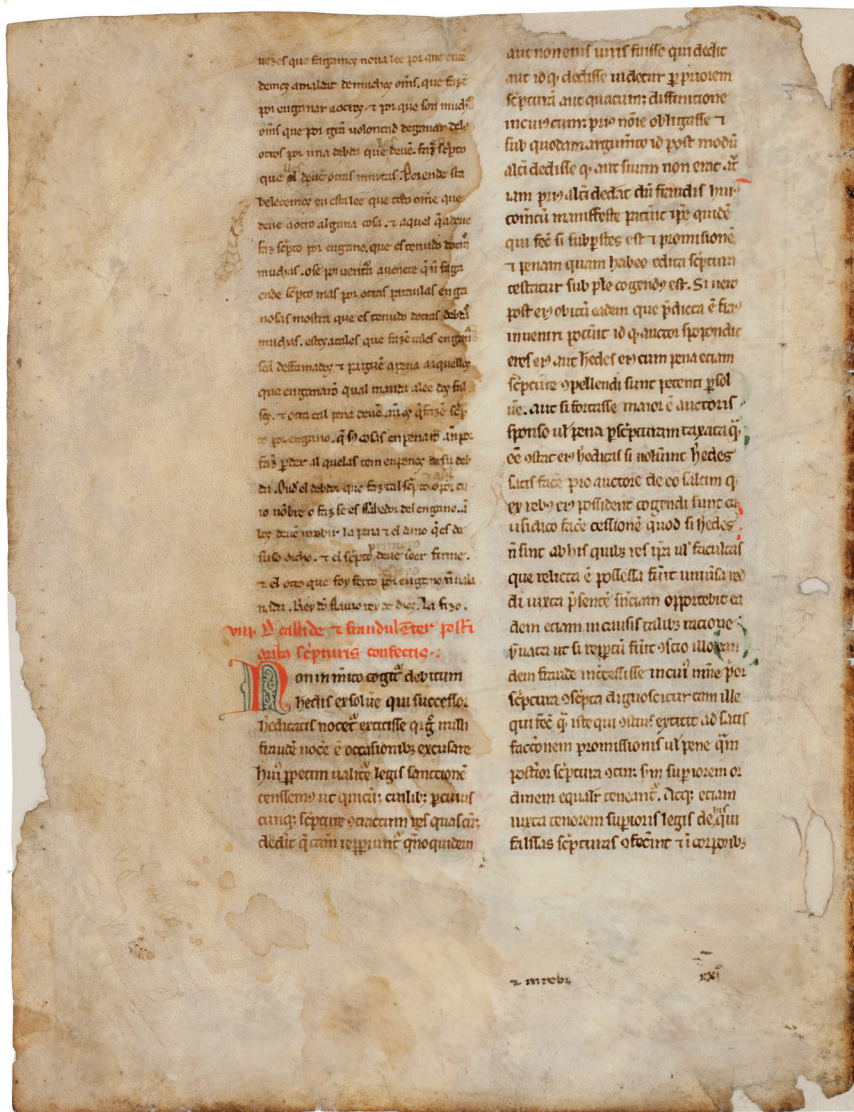 uezes que fagamos noua lee por que ente
demos amaldat de muchos oms. que faze
por enganar aotros. ⁊ por que son muchos
oms que por gran uolontad deganar delos
otros por una debda que deuen. faz scpto
que les deue otras muytas. Porende sta
belecemos en esta lee que todo ome que
deue aotro alguna cosa. ⁊ aquel q̃ adeue
faz scpto por engano, que es tenudo dotras
muchas. ose por uentura auenere q̃ n faga
ende scpto mas por otras paraulas enga
nosas mostra que es tenudo dotras debdas
muchas. estos atales que fazẽ tales engan̄
seã deffamados ⁊
que enganarõ qual manda alee dos fal
sos. ⁊ otra tal pena deuẽ auer q̃ fazẽ scp
to por engano. q̃ sus cosas en penarõ
faz perder al quelas tem enpenos de su deb
da. Oud el debdor que faz tal scpto
nõbre o faz se es sabedor del engano. a
los deuẽ reccbir la pena ⁊ el dano q̃ es de
suso dicho. ⁊ el scpto deue seer firme.
⁊ el otro que foy ferto por engano nõ uala
nada. Rey dõ flauio rey de dios. La fizo.
viii. D callide ⁊ fraudulẽter posti
orib; scpturis confectis.
Non inmico cogit̃ debitum
hedis exsolue qui successor
hẽditatis nocet̃ extitisse q̃ nulli
fraudẽ nocẽ ẽ occasionib; excusare
hui᷒ ꝑpetim ualitẽ legis sanctionẽ
censsem᷒ ut quicũ; cuilib; ꝑ cuius
cunq; scpture ꝯtractum res quascũ;
dedit q̃ tam repperiunt̃ quidem
aut non eius iuris fuisse qui dedit
aut id q̃ dedisse uidetur ꝑ priorem
scpturã aut quacum; diffinicione
incui᷒ cum; pri᷒ nõie obligasse ⁊
sub quodam argumẽto id post modũ
alĩ dedisse q̃ aut suum non erat. aĩt
iam pri᷒ alĩ dedat dũ fraudis hui᷒
comẽtũ maniffeste patũit ipẽ quidẽ
qui feẽ si subꝑstes est ⁊ promisionẽ
⁊ penam quam habeo edita scptura
testatur sub ple cogend᷒ est. Si uero
post ei᷒ obitũ eadem que p̃dicta ẽ fra᷒
inueniri potũit id q̃ auctor spopondit
eres ei᷒ aut hedes ei᷒ cum pena etiam
scpture ꝯpellendi sunt petenti ꝑsol
ũe. aut si fortasse maior ẽ auctoris
sponsio ul᷒ pena ꝑ scpturam taxata q̃
ẽe ꝯstat ei᷒ heditas si noluint hedes
satis facẽ pro auctore de eo saltim q̃
ex reb᷒ ei᷒ possident cogendi sunt ca
usidico facẽ cessionẽ quod si hedes
ñ sint ab his quib; res ipa ul᷒ facultas
que relicta ẽ possessa fũit uniũsa red
di iuxta p̃sentẽ snĩciam opportebit ea
dem etiam incausis talib; racione
ũata ut si reꝑptũ fũit ꝯscio illo
dem fraude intcessisse incui᷒ nnie por
scptura ꝯscpta dignoscitur tam ille
qui feẽ q̃ iste qui ꝯscius extitit ad satis
factõnem promissionis ul᷒ pene q̃m
postior scptura ꝯtin; scm supiorem or
dinem equalr teneant̃. Atq; etiam
iuxta tenorem supioris legis de his qui
falsas scpturas ꝯfecint ⁊ i corporib;
⁊ in reb;
xxi